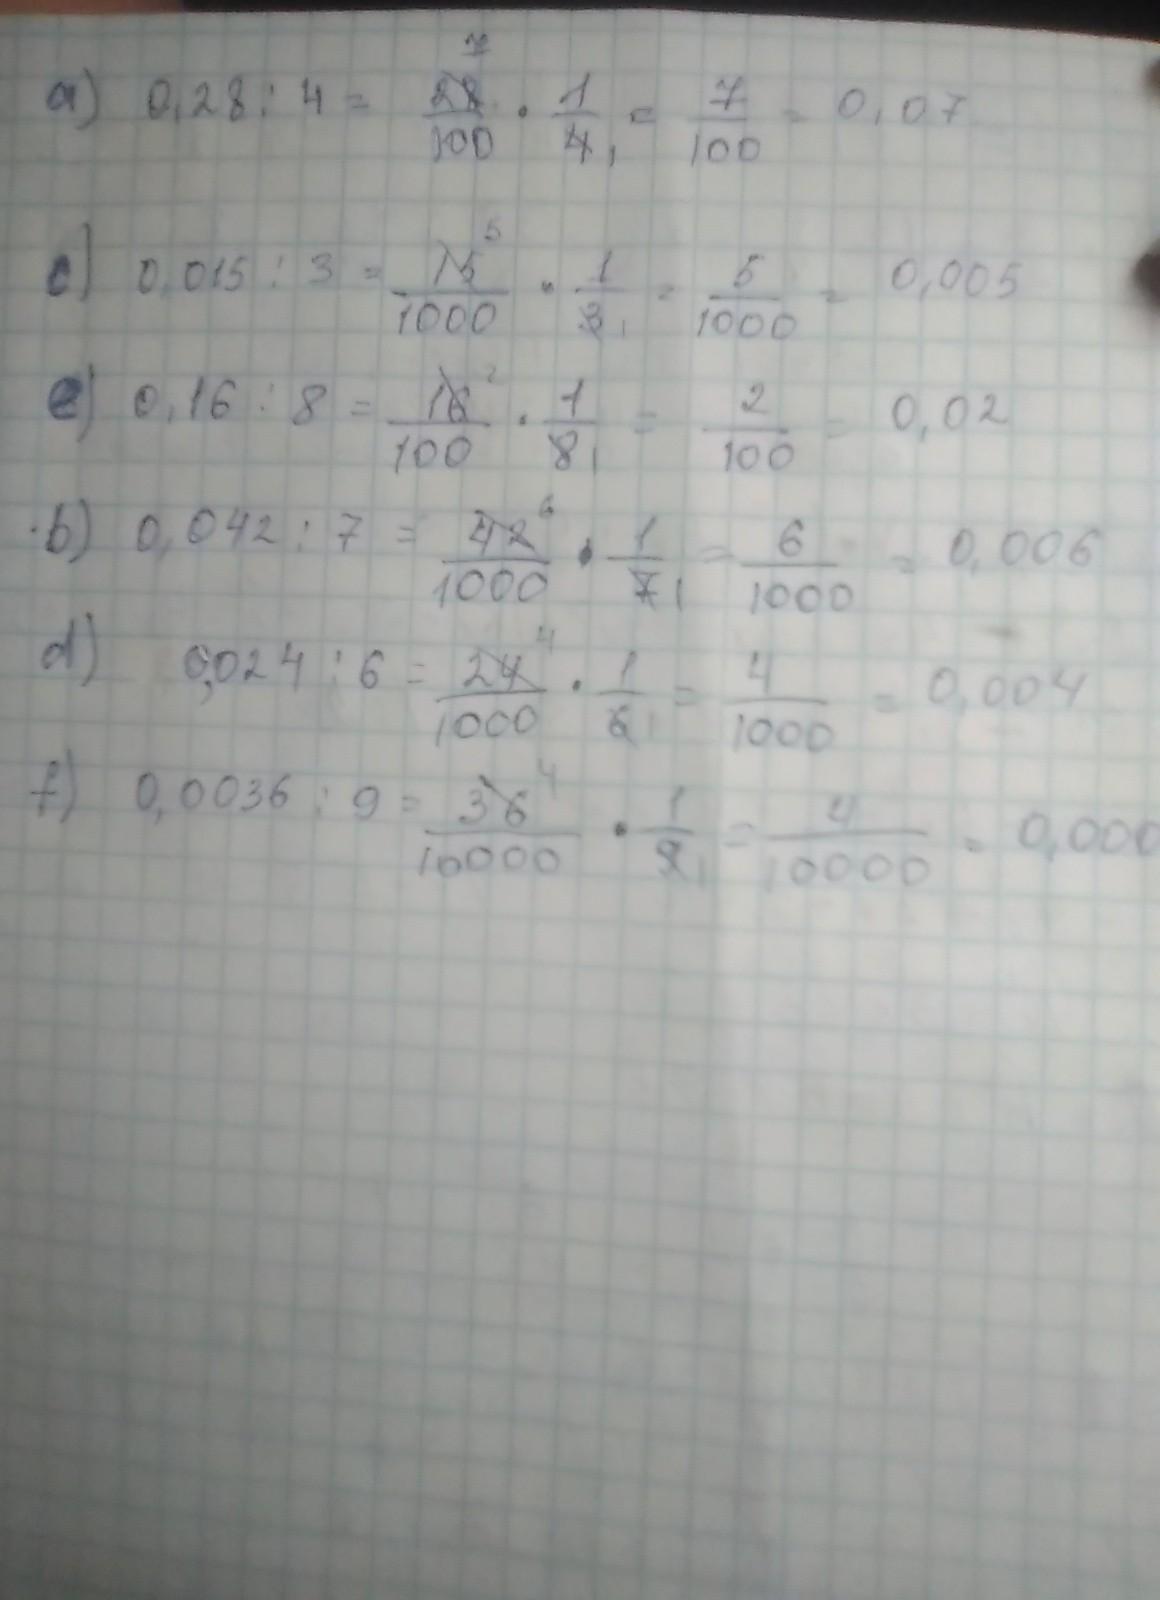 a) 0,28 : 4 = 28/100 7 · 1/4 1 = 7/100 = 0,07
c) 0,015 : 3 = 15/1000 5 · 1/3 1 = 5/1000 = 0,005
e) 0,16 : 8 = 16/100 2 · 1/8 1 = 2/100 = 0,02
b) 0,042 : 7 = 42/1000 6 · 1/7 1 = 6/1000 = 0,006
d) 0,024 : 6 = 24/1000 4 · 1/6 1 = 4/1000 = 0,004
f) 0,0036 : 9 = 36/10000 4 · 1/9 1 = 4/10000 = 0,000